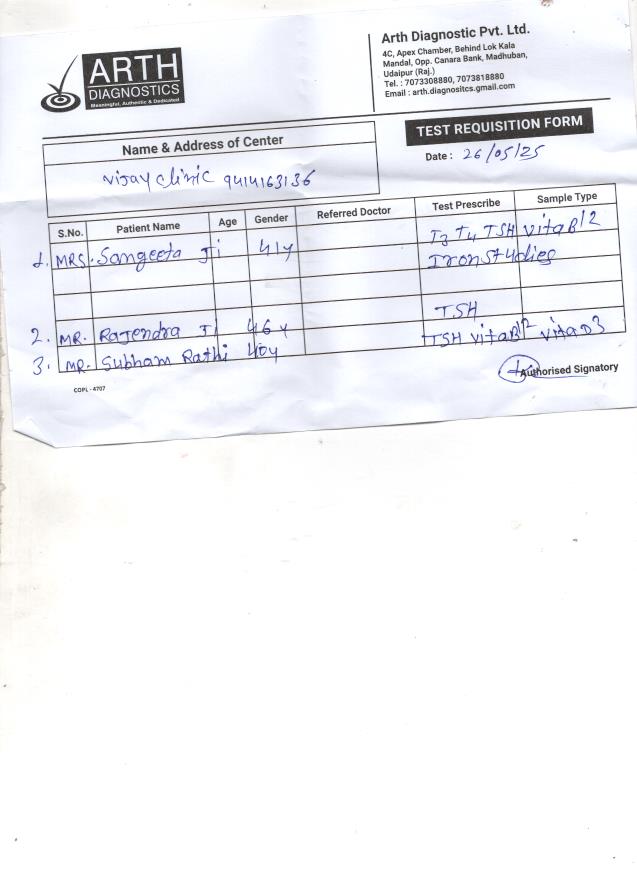 ARTH
DIAGNOSTICS
Meaningful, Authentic & Dedicated
Arth Diagnostic Pvt. Ltd.
4C, Apex Chamber, Behind Lok Kala
Mandal, Opp. Canara Bank, Madhuban,
Udaipur (Raj.)
Tel. : 7073308880, 7073818880
Email : arth.diagnositcs.gmail.com
TEST REQUISITION FORM
Date : 26/05/25
Name & Address of Center
Vijay Clinic 9414163136
S.No. Patient Name Age Gender Referred Doctor Test Prescribe Sample Type
1. MRS. Sangeeta Ji 41y T3 T4 TSH VitaB12
Iron Studies
2. MR. Rajendra Ji 46y TSH
3. MR. Subham Rathi 40y TSH VitaB12 VitaD3
Authorised Signatory
COPL - 4707